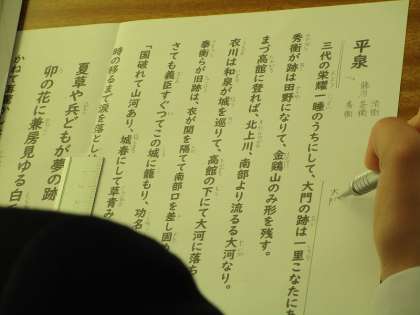 平泉
藤原
清衡
基衡
秀衡
三代の栄耀一睡のうちにして、大門の跡は一里こなたにあ
秀衡が跡は田野になりて、金鶏山のみ形を残す。
まづ高館に登れば、北上川、南部より流るる大河なり。
衣川は和泉が城を巡りて、高館の下にて大河に落ち
泰衡らが旧跡は、衣が関を隔てて南部口を差し固め
さても義臣すぐつてこの城に籠もり、功名
「国破れて山河あり、城春にして草青み
時の移るまで涙を落としは
夏草や兵どもが夢の跡
卯の花に兼房見ゆる白
かねて耳驚か
大門